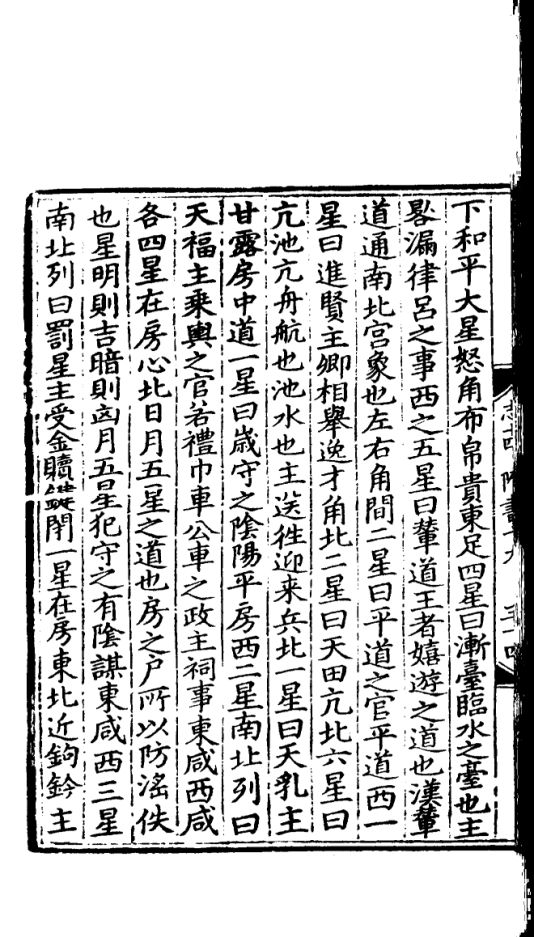 下和平大星怒角布帛貴東足四星曰漸臺臨水之臺也主
晷漏律呂之事西之五星曰輦道王者嬉遊之道也漢輦
道通南北宮象也左右角間二星曰平道之官平道西一
星曰進賢主卿相舉逸才角北二星曰天田亢北六星曰
亢池亢舟航也池水也主送徃迎来兵北一星曰天乳主
甘露房中道一星曰歳守之陰陽平房西二星南北列曰
天福主乘輿之官若禮巾車公車之政主祠事東咸西咸
各四星在房心北日月五星之道也房之户所以防滛佚
也星明則吉暗則凶月五星犯守之有陰謀東咸西三星
南北列曰罰星主受金贖鍵閉一星在房東北近鉤鈐主